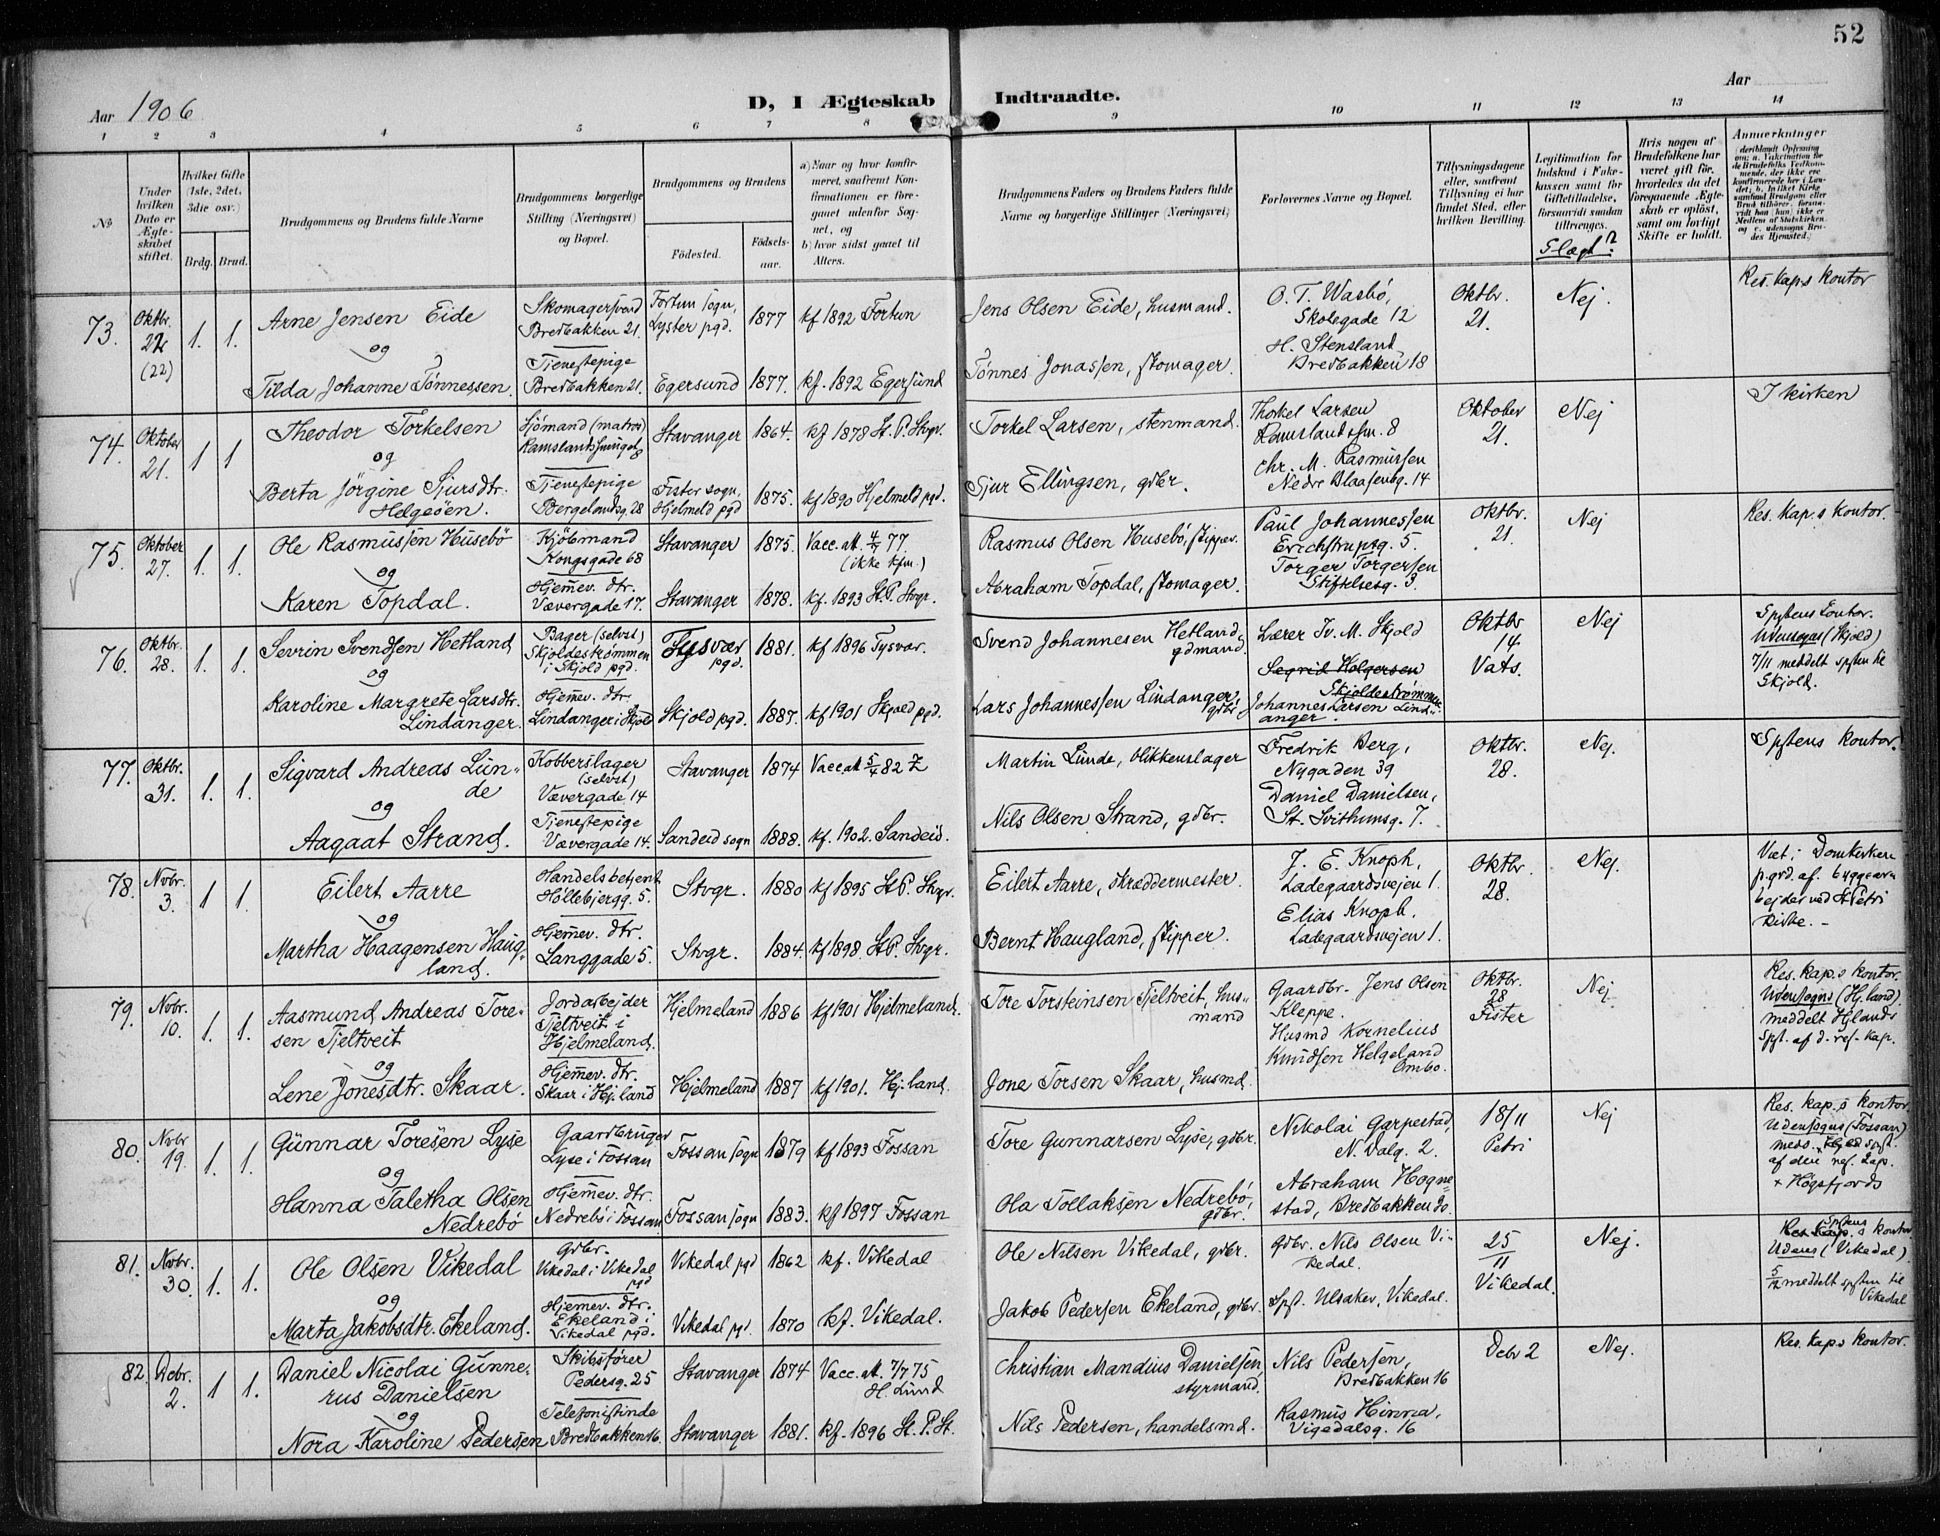 52
Aar 1906
D, I Ægteskab Indtraadte.
Aar
1 2 3 4 5 6 7 8 9 10 11 12 13 14
No
Under hvilken Dato er Ægteskabet stiftet.
Hvilket Gifte (1ste, 2det, 3die osv.)
Brdg. Brud.
Brudgommens og Brudens fulde Navne
Brudgommens borgerlige Stilling (Næringsvei) og Bopæl.
Brudgommens og Brudens
Fødested. Fødselsaar.
a) Naar og hvor konfirmeret, saafremt Konfirmationen er foregaaet udenfor Sognet, og
b) hvor sidst gaaet til Alters.
Brudgommens Faders og Brudens Faders fulde Navne og borgerlige Stillinger (Næringsvei)
Forlovernes Navne og Bopæl.
Tillysningsdagene eller, saafremt Tillysning ei har fundet Sted, efter hvilken Bevilling.
Legitimation for Indskud i Enkekassen samt for Giftetilladelse, forsaavidt saadan tiltrænges.
Slægt?
Hvis nogen af Brudefolkene har været gift før, hvorledes da det foregaaende Ægteskab er opløst, samt om lovligt Skifte er holdt.
Anmærkninger
73. Oktbr. 22 (22) 1. 1.
Arne Jensen Eide
Skomagersvend Bredbakken 21.
Fortun sogn, Lyster pgd. 1877 kf 1892 Fortun
Jens Olsen Eide, husmand.
O. T. Wasbö, Skolegade 12
H. Stensland Bredbakken 18
Oktbr. 21. Nej.
Res. kap.s kontor
og
Tilda Johanne Tönnessen.
Tjenestepige Bredbakken 21. Egersund 1877. kf. 1892 Egersund
Tönnes Jonassen, skomager.
74. Oktober 21. 1 1
Theodor Torkelsen
Sjömand (matros)
Stavanger 1864. kf 1878 St. P. Stvgr.
Torkel Larsen, stenmand.
Thorkel Larsen
Chr. M. Rasmussen
Nedre Blaasenbg. 14
Oktober 21. Nej
I kirken
og
Berta Jörgine Sjursdtr. Helgeöen.
Tjenestepige Bergelandsg. 28
Fister sogn, Hjelmeld pgd 1875. kf 1890 Hjelmeld pgd.
Sjur Ellingsen, gdbr.
75. Oktober 27. 1. 1.
Ole Rasmussen Husebö
Kjöbmand Kongsgade 68
Stavanger 1875. Vacc. att. 4/7 77. (ikke kfm.)
Rasmus Olsen Husebö, skipper.
Paul Johannessen Erichstrupsg. 5.
Torger Torgersen Stiftelsesg. 3
Oktbr. 21. Nej
Res. kap.s kontor.
og
Karen Topdal.
Hjemmev. dtr. Vævergade 17. Stavanger 1878. kf. 1893 St. P. Stvgr.
Abraham Topdal, skomager.
76. Oktbr. 28. 1. 1.
Sevrin Svendsen Hetland
Bager (selvst) Skjoldestrømmen i Skjold pgd.
Tysvær pgd. 1881. kf 1896 Tysvær.
Svend Johannesen Hetland, gdmand.
Lærer Iv. M. Skjold
Segrid Holgersen Skjoldestrømmen
Johannes Larsen Lindanger.
Oktbr 14 Vats. Nej
Spstens kontor.
Udensogns (Skjold)
7/11 meddelt spsten til Skjold.
og
Karoline Margrete Larsdtr. Lindanger.
Hjemmev. dtr. Lindanger i Skjold Skjold pgd. 1887. kf 1901 Skjold pgd.
Lars Johannessen Lindanger, gdbr
77. Oktbr. 31. 1. 1.
Sigvard Andreas Lunde
Kobberslager (selvst) Vævergade 14
Stavanger 1874 Vacc att 5/4 82
Martin Lunde, blikkenslager
Fredrik Berg, Nygaden 39
Daniel Danielsen, St. Svithunsg. 7.
Oktbr. 28. Nej.
Spstens kontor.
og
Aagaat Strand.
Tjenestepige Vævergade 14. Sandeid sogn 1888. kf. 1902. Sandeid.
Nils Olsen Strand, gdbr.
78. Novbr. 3. 1 1.
Eilert Aarre
Handelsbetjent Höllebjergg. 5.
Stvgr. 1880 kf 1895 St P. Stvgr.
Eilert Aarre, skræddermester.
J. E. Knoph, Ladegaardsvejen 1.
Elias Knoph. Ladegaardsvejen 1.
Oktbr 28. Nej.
Viet i Domkirken p. grd. af byggearbejder ved St Petri kirke. –
og
Martha Haagensen Haugland.
Hjemmev. dtr. Langgade 5. Stvgr. 1884 kf 1898. St P. Stvgr.
Bernt Haugland, skipper.
79. Novbr. 10. 1. 1.
Aasmund Andreas Toresen Tjeltveit
Jordarbejder Tjeltveit i Hjelmeland.
Hjelmeland 1886 kf 1901 Hjelmeland.
Tore Torsteinsen Tjeltveit, husmand
Gaardbr. Jens Olsen Kleppe.
Husmd Kornelius Knudsen Helgeland Ombo.
Oktbr. 28 Fister Nej
Res. kap.s kontor.
Udensogns (Hj.land).
meddelt Hjlands Spst. af d. res. kap.
og
Lene Jonesdtr. Skaar.
Hjemmev. dtr. Skaar i Hj.land Hjelmeland 1887 kf 1901. Hj.land.
Jone Torsen Skaar, husmd.
80. Novbr 19. 1. 1.
Gunnar Toresen Lyse
Gaardbruger Lyse i Fossan
Fossan sogn 1879 kf 1893 Fossan
Tore Gunnarsen Lyse, gdbr.
Nikolai Garpestad, N. Dalg. 2.
Abraham Hognestad, Bredbakken
18/11 Petri Nej
Res. kap.s kontor.
Udensogns (Fossan)
af den res. kap.
+ Högsfjords
og
Hanna Taletha Olsen Nedrebö
Hjemmev. dtr. Nedrebö i Fossan Fossan sogn 1883. kf 1897 Fossan
Ola Tollaksen Nedrebö, gdbr.
81. Novbr. 30. 1. 1.
Ole Olsen Vikedal
Gdbr. Vikedal i Vikedal pgd
Vikedal pgd 1862 kf. Vikedal
Ole Nilsen Vikedal, gdbr.
Gdbr. Nils Olsen Vikedal.
Spst. Ulsaker, Vikedal.
25/11 Vikedal. Nej.
Res. Kap.s Spstens kontor
Udens (Vikedal)
meddelt spsten til Vikedal
og
Marta Jakobsdtr. Ekeland.
Hjemmev. dtr. Ekeland i Vikedal pgd. Vikedal pgd. 1870 kf. Vikedal.
Jakob Pedersen Ekeland, gdbr.
82 Dcbr. 2. 1 1.
Daniel Nicolai Gunnerus Danielsen
Skibsfører Pedersg. 25
Stavanger 1874 Vacc. att. 7/7 75 H. Lund
Christian Mandius Danielsen, styrmand.
Nils Pedersen, Bredbakken 16
Rasmus Hinna, Vigedalsg. 16
Dcbr 2 Nej.
Res. kap.s kontor.
og
Nora Karoline Pedersen
Telefonistinde Bredbakken 16. Stavanger 1881. kf. 1896 St. P. St.
Nils Pedersen, handelsmd.